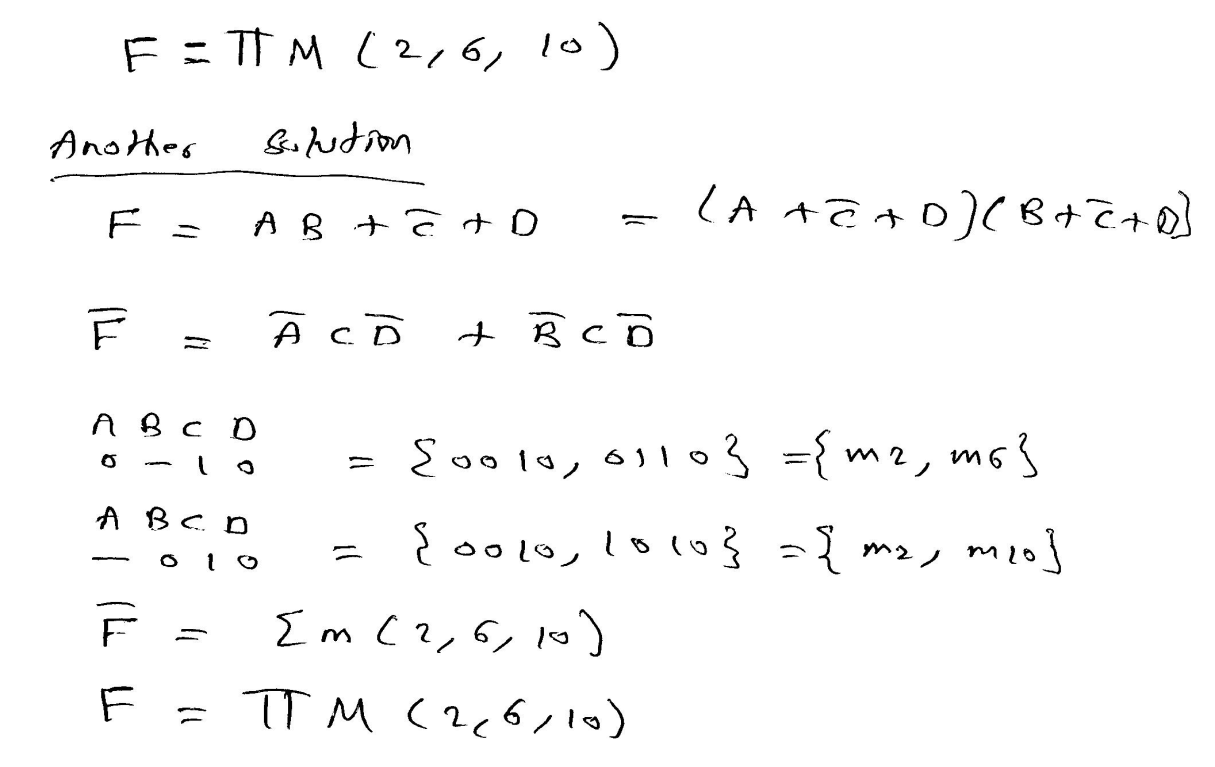 F = Π M (2, 6, 10)
Another Solution
F = AB + C̅ + D = (A + C̅ + D)(B + C̅ + D)
F̅ = A̅ C D̅ + B̅ C D̅
A B C D
0 – 1 0 = {0010, 0110} = {m2, m6}
A B C D
– 0 1 0 = {0010, 1010} = {m2, m10}
F̅ = Σ m (2, 6, 10)
F = Π M (2, 6, 10)